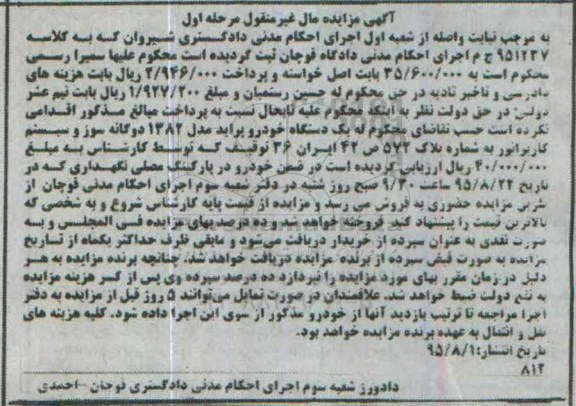 آگهی مزایده مال غیرمنقول مرحله اول
به موجب نیابت واصله از شعبه اول اجرای احکام مدنی دادگستری شیروان که به کلاسه
۹۵۱۲۳۷ ج م اجرای احکام مدنی دادگاه قوچان ثبت گردیده است محکوم علیها سمیرا رسمی
محکوم است به ۳۵/۶۰۰/۰۰۰ بابت اصل خواسته و پرداخت ۲/۹۴۶/۰۰۰ ریال بابت هزینه های
دادرسی و تاخیر تادیه در حق محکوم له حسین رستمیان و مبلغ ۱/۹۲۷/۲۰۰ ریال بابت نیم عشر
دولتی در حق دولت نظر به اینکه محکوم علیه تابحال نسبت به پرداخت مبالغ مذکور اقدامی
نکرده است حسب تقاضای محکوم له یک دستگاه خودرو پراید مدل ۱۳۸۲ دوگانه سوز و سیستم
کاربراتور به شماره پلاک ۵۷۲ ص ۴۲ ایران ۳۶ توقیف که توسط کارشناس به مبلغ
۴۰/۰۰۰/۰۰۰ ریال ارزیابی گردیده است در ضمن خودرو در پارکینگ مصلی نگهداری که در
تاریخ ۹۵/۸/۲۲ ساعت ۹/۳۰ صبح روز شنبه در دفتر شعبه سوم اجرای احکام مدنی قوچان از
طریق مزایده حضوری به فروش می رسد و مزایده از قیمت پایه کارشناس شروع و به شخصی که
بالاترین قیمت را پیشنهاد کند فروخته خواهد شد و ده درصد بهای مزایده فی المجلس و به
صورت نقدی به عنوان سپرده از خریدار دریافت می‌شود و مابقی ظرف حداکثر یکماه از تاریخ
مزایده به صورت قبض سپرده از برنده مزایده دریافت خواهد شد. چنانچه برنده مزایده به هر
دلیل در زمان مقرر بهای مورد مزایده را نپردازد ده درصد سپرده وی پس از کسر هزینه مزایده
به نفع دولت ضبط خواهد شد. علاقمندان در صورت تمایل می‌توانند ۵ روز قبل از مزایده به دفتر
اجرا مراجعه تا ترتیب بازدید آنها از خودرو مذکور از سوی این اجرا داده شود. کلیه هزینه های
نقل و انتقال به عهده برنده مزایده خواهد بود.
تاریخ انتشار: ۹۵/۸/۱
۸۱۲
دادورز شعبه سوم اجرای احکام مدنی دادگستری قوچان - احمدی